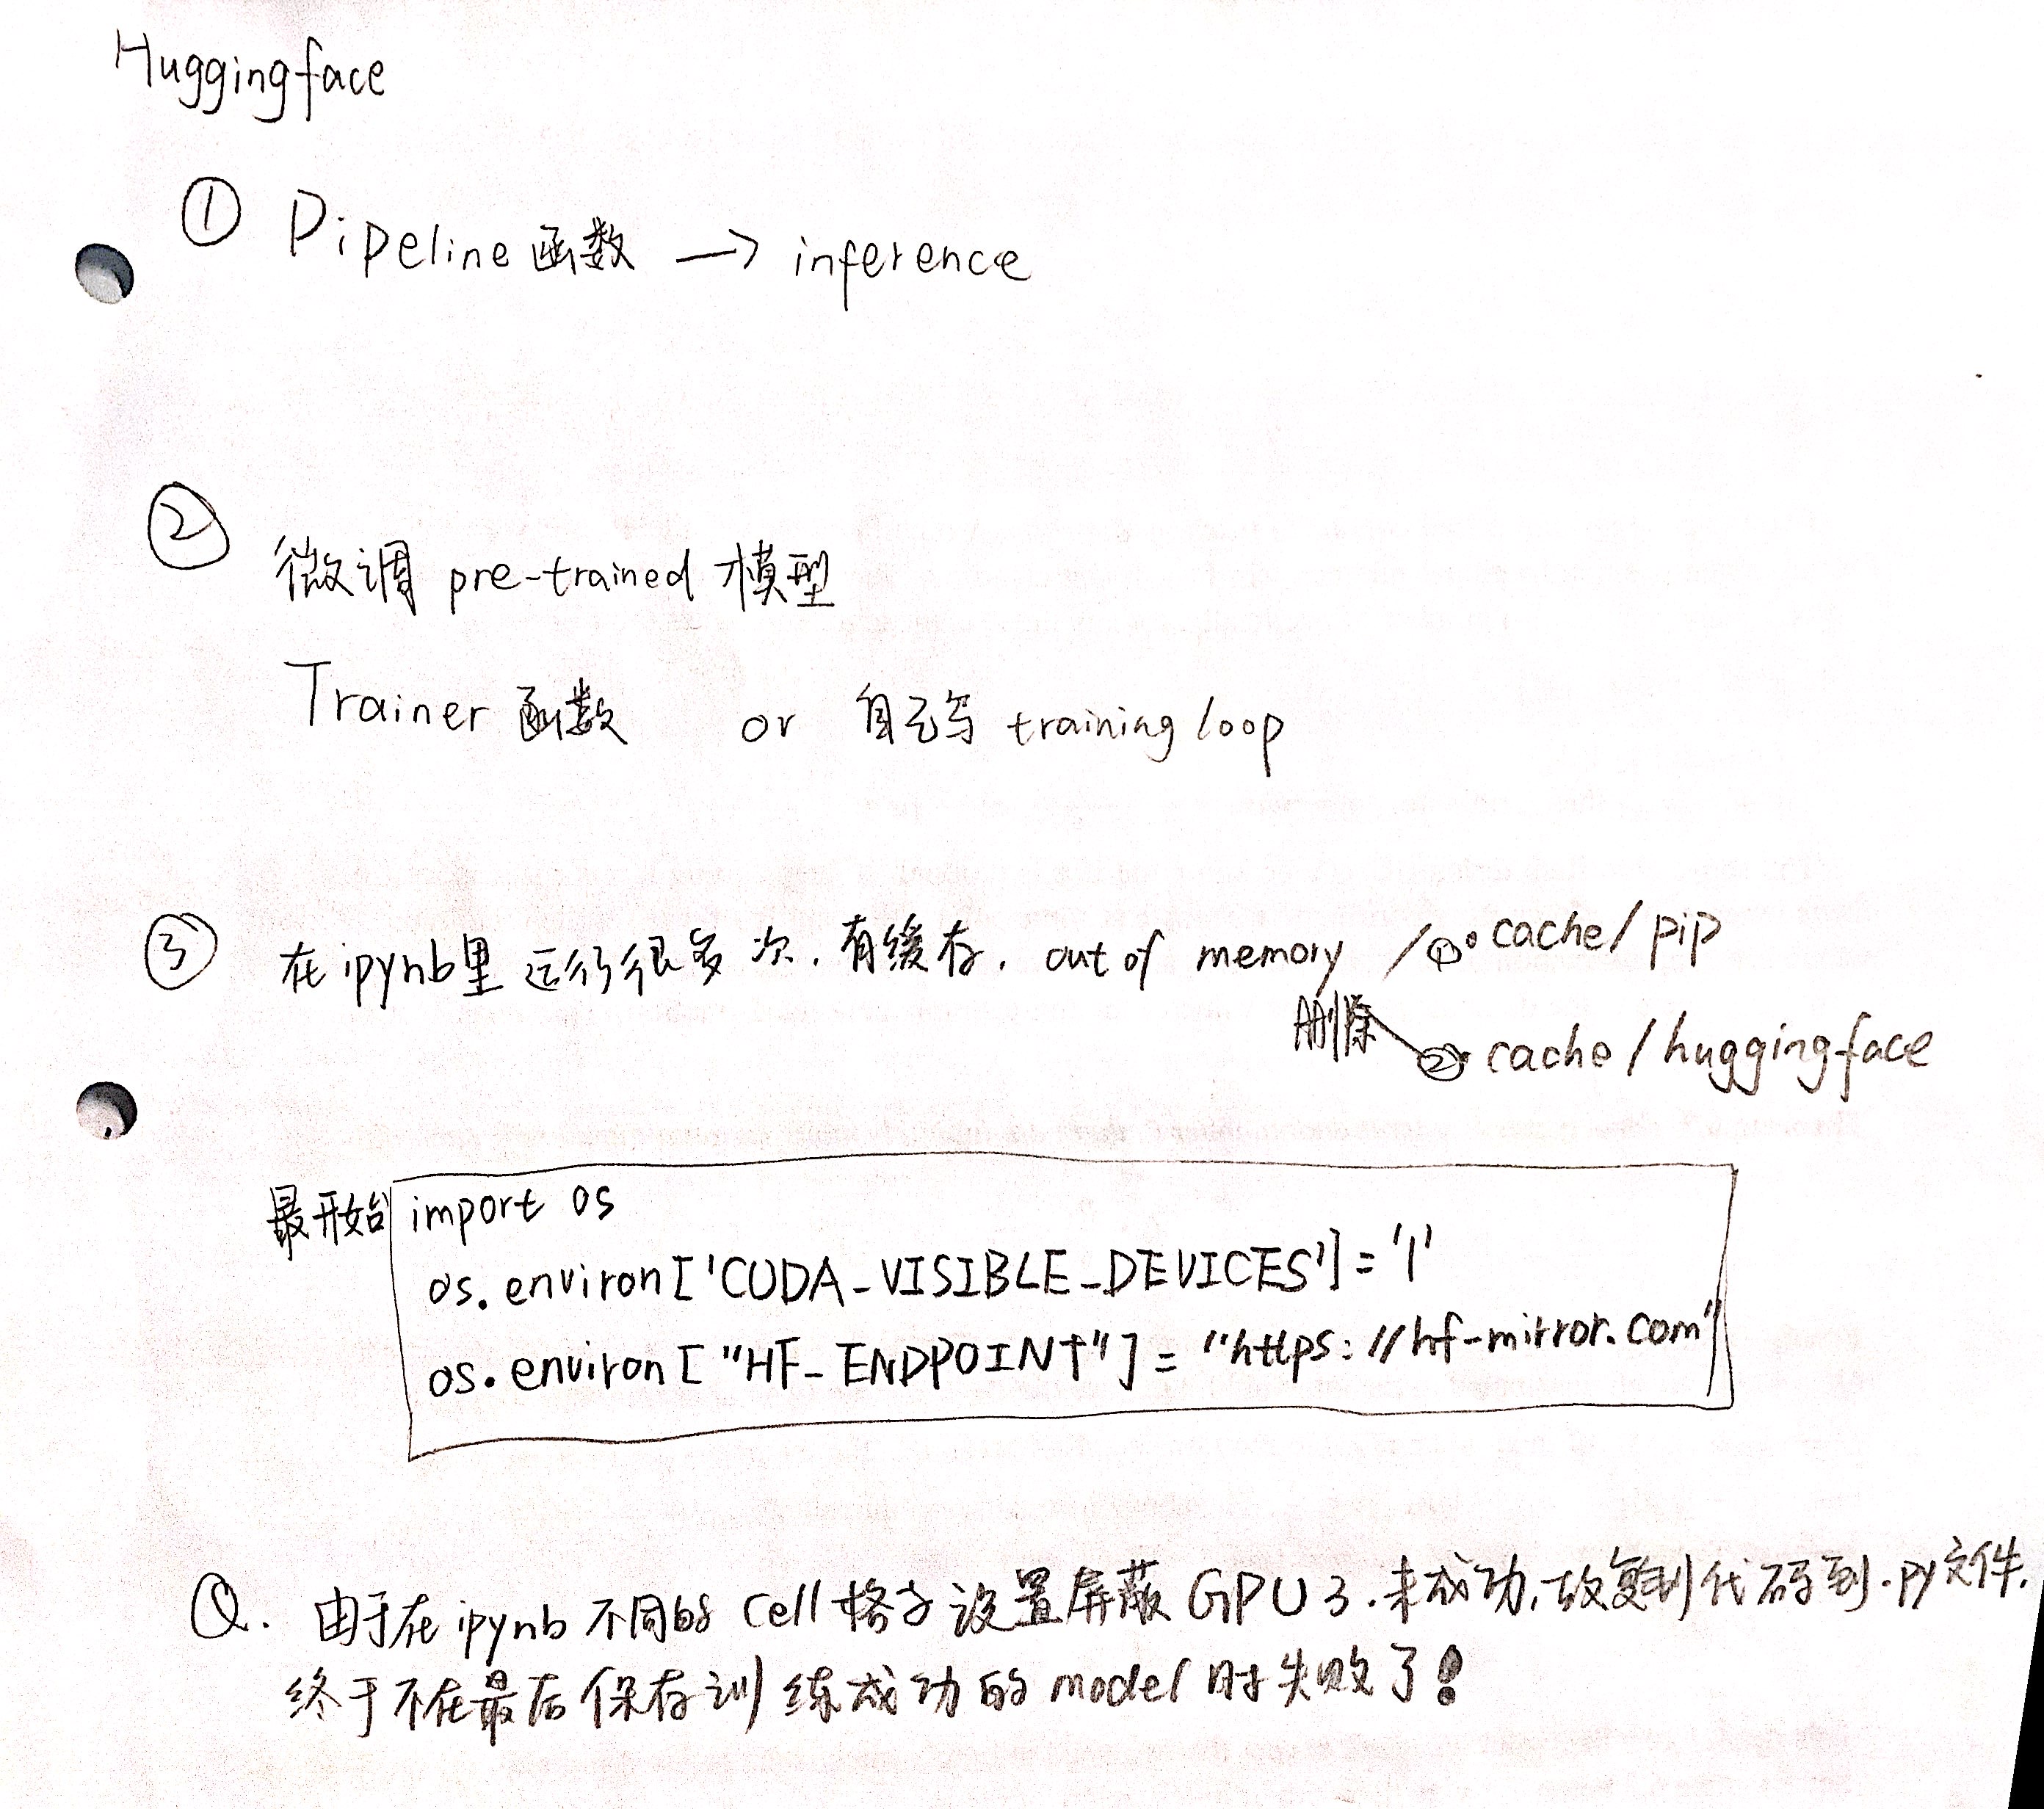 Huggingface
① Pipeline 函数 → inference
② 微调 pre-trained 模型
Trainer 函数 or 自己写 training loop
③ 在ipynb里运行很多次. 有缓存. out of memory / ①. cache/pip
删除 ②. cache/huggingface
最开始 import os
os.environ['CUDA_VISIBLE_DEVICES']='1'
os.environ["HF_ENDPOINT"] = "https://hf-mirror.com"
Q. 由于在ipynb 不同的 cell 格子 设置屏蔽 GPU 3. 未成功, 故复制代码到.py文件.
终于不在最后保存训练成功的 model 时失败了!